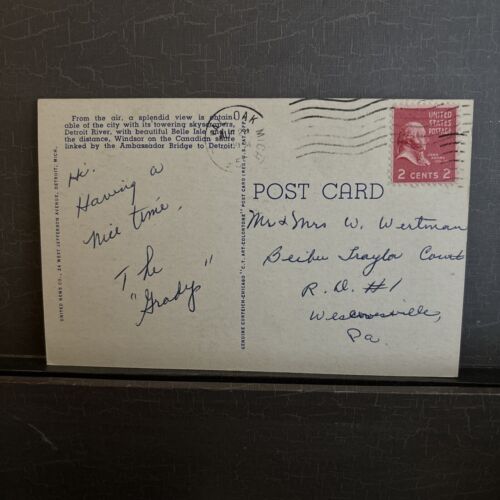 From the air, a splendid view is obtain-
able of the city with its towering skyscrapers,
Detroit River, with beautiful Belle Isle and in
the distance, Windsor on the Canadian shore
linked by the Ambassador Bridge to Detroit.
Hi.
Having a
nice time.
The
"Gradys"
UNITED NEWS CO., 26 WEST JEFFERSON AVENUE, DETROIT, MICH.
GENUINE CURTEICH-CHICAGO "C.T. ART-COLORTONE" POST CARD (REG. U.S. PAT. OFF.)
OAK MICH
UNITED
STATES
POSTAGE
2 CENTS 2
POST CARD
Mr & Mrs W. Wertman
Traylor Court
R.D. #1
Wescoesville,
Pa.